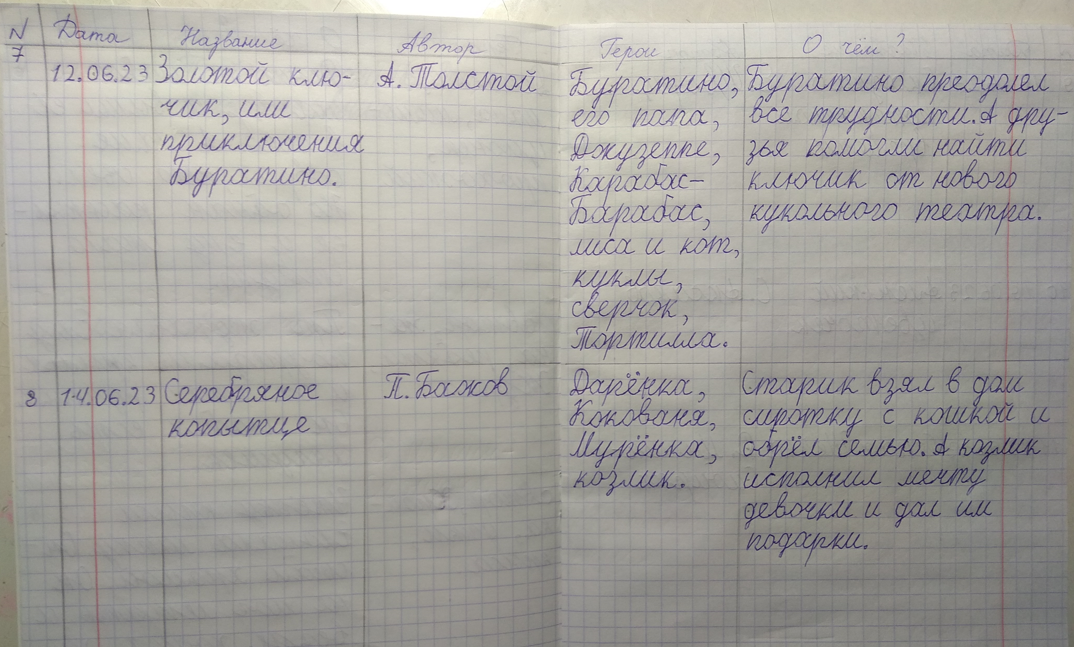 N Дата Название Автор Герои О чём?
7 12.06.23 Золотой клю- А. Толстой Буратино, Буратино преодолел
чик, или его папа, все трудности. А дру-
приключения Джузеппе, зья помогли найти
Буратино. Карабас- ключик от нового
Барабас, кукольного театра.
лиса и кот,
куклы,
сверчок,
Тортилла.
8 14.06.23 Серебряное П. Бажов Дарёнка, Старик взял в дом
копытце Кокованя, сиротку с кошкой и
Мурёнка, обрёл семью. А козлик
козлик. исполнил мечту
девочки и дал им
подарки.